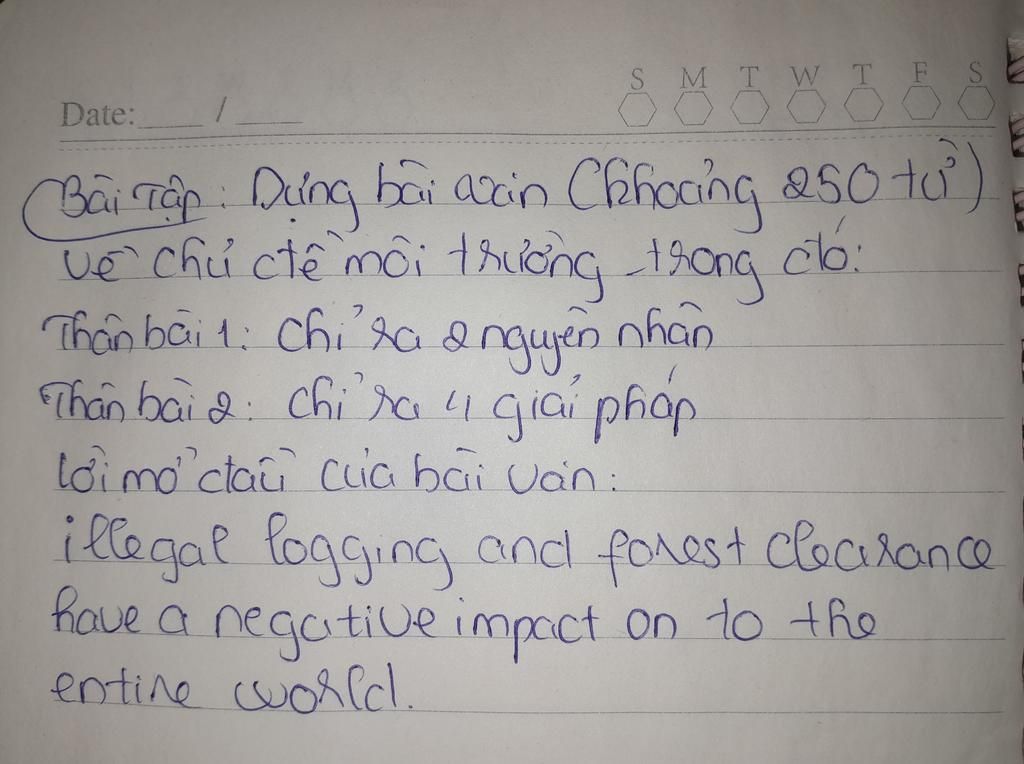 S M T W T F S
Date: ___ / ___
Bài Tập: Dựng bài văn (khoảng 250 từ)
về chủ đề môi trường trong đó:
Thân bài 1: chỉ ra 2 nguyên nhân
Thân bài 2: chỉ ra 4 giải pháp
lời mở đầu của bài văn:
illegal logging and forest clearance
have a negative impact on to the
entire world.